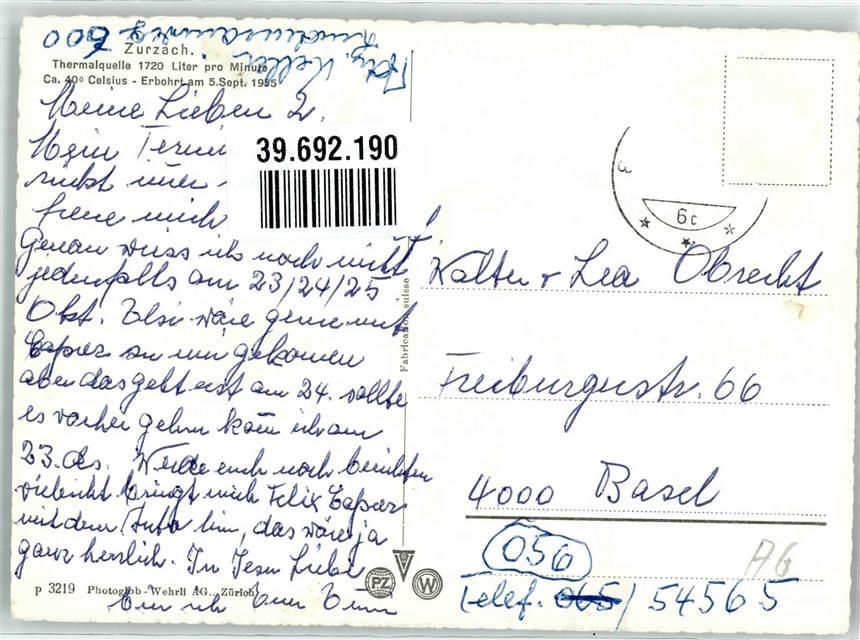 600
Zurzach.
Thermalquelle 1720 Liter pro Minute
Ca. 40º Celsius - Erbohrt am 5.Sept. 1955
Meine Lieben 2.
Mein
39.692.190
rückt
freue mich
Genau weiss ich noch nicht
jedenfalls am 23/24/25
Okt. Elsi wäre gerne mit
zu mir gekommen
aber das geht erst am 24. sollte
es vorher gehn kom ich am
23. ds. Werde euch noch berichten
vieleicht bringt mich Felix
mit dem Auto hin, das wäre ja
ganz herzlich. In Jesu Liebe
bin ich Euer
p 3219 Photoglob-Wehrli AG., Zürich
Fabrication suisse
PZ
W
6c
Walter + Lea Obrecht
Freiburgerstr. 66
4000 Basel
056
Telef. 065/54565
AG